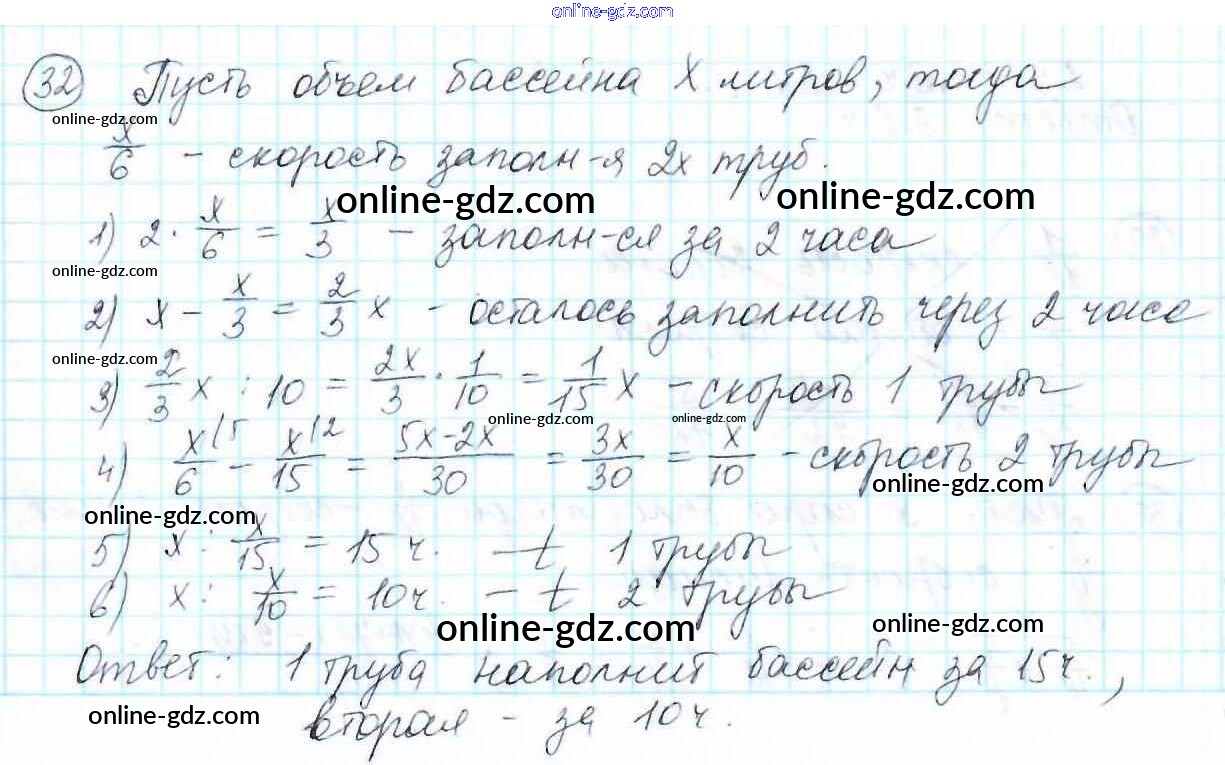 online-gdz.com
32 Пусть объем бассейна x литров, тогда
online-gdz.com
x/6 - скорость заполн-я 2х труб.
online-gdz.com online-gdz.com
1) 2 · x/6 = x/3 - заполн-ся за 2 часа
online-gdz.com
2) x - x/3 = 2/3 x - осталось заполнить через 2 часа
online-gdz.com
3) 2/3 x : 10 = 2x/3 · 1/10 = 1/15 x - скорость 1 трубы
online-gdz.com online-gdz.com
4) x|5/6 - x|2/15 = 5x-2x/30 = 3x/30 = x/10 - скорость 2 трубы
online-gdz.com
online-gdz.com
5) x : x/15 = 15 ч. - t 1 трубы
6) x : x/10 = 10ч. - t 2 трубы
online-gdz.com online-gdz.com
Ответ: 1 труба наполнит бассейн за 15ч.,
online-gdz.com
вторая - за 10ч.